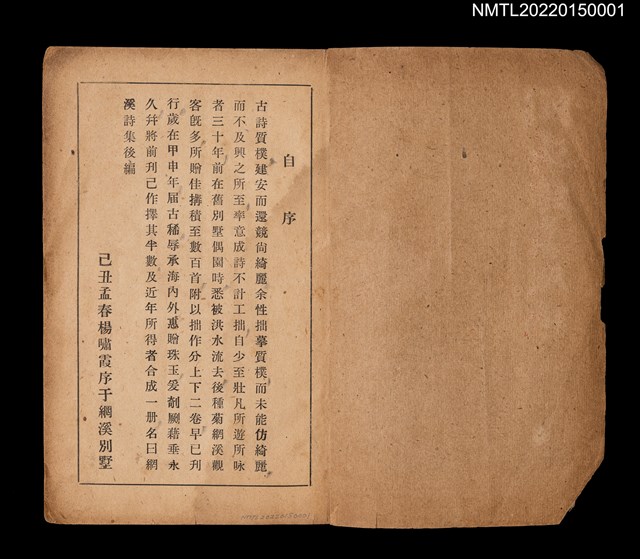 NMTL20220150001
自序
古詩質樸建安而還競尙綺麗余性拙摹質樸而未能仿綺麗
而不及興之所至率意成詩不計工拙自少至壯凡所遊所咏
者三十年前在舊別墅偶園時悉被洪水流去後種菊網溪觀
客旣多所贈佳搆積至數百首附以拙作分上下二卷早已刋
行歲在甲申年届古稀辱承海內外惠贈珠玉爰剞劂藉垂永
久幷將前刋己作擇其半數及近年所得者合成一册名曰網
溪詩集後編
己丑孟春楊嘯霞序于網溪別墅
NMTL20220150001